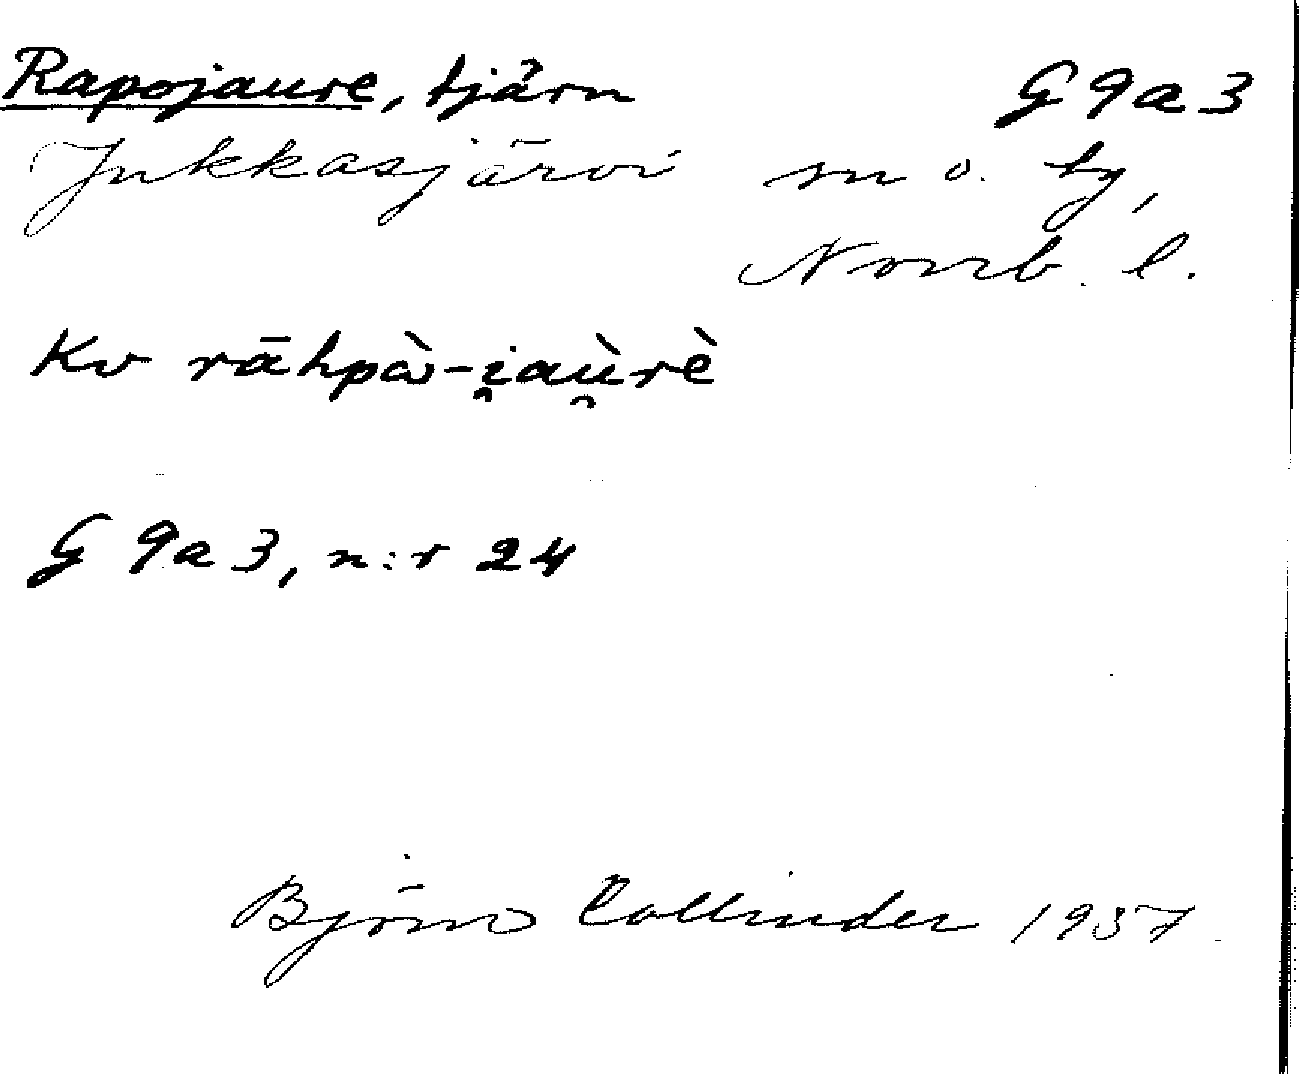 Rapojaure, tjärn G 9a 3
Jukkasjärvi sn o. tg,
Norrb. l.
Kv rāhpὼ-i̯aù̯rè
G 9a 3, n:r 24
Björn Collinder 1937